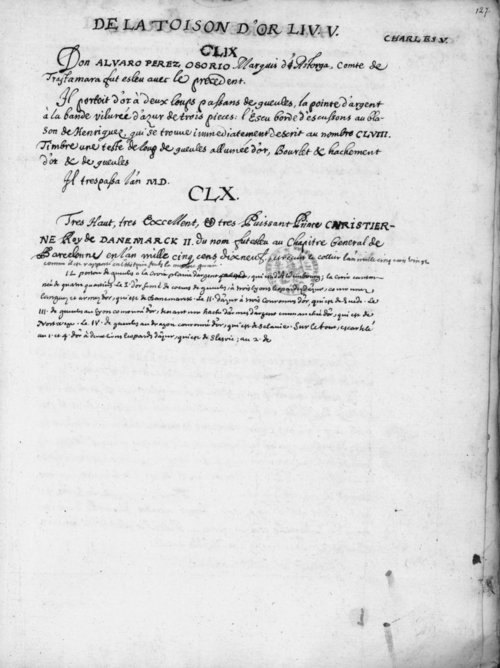 127
DE LA TOISON D'OR LIV. V.
CHARLES V.
CLIX
Don ALVARO PEREZ OSORIO Marquis d'Astorga, Comte de
Trastamara fut esleu avec le precedent.
Il portoit d'or à deux loups passans de gueules, la pointe d'argent
à la bande vilurée d'azur de trois pieces: l'Escu bordé d'escussons au bla-
son de Henriquez, qui se trouve immediatement descrit au nombre CLVIII.
Timbre une teste de loup de gueules allumée d'or, Bourlet & hachement
d'or & de gueules
Il trespassa l'an M.D.
CLX.
Tres Haut, tres Excellent, & tres Puissant Prince CHRISTIER-
NE Roy de DANEMARCK II. du nom fut esleu au Chapitre General de
Barcelonne en l'an mille cinq cens dixneuf, le collier l'an mille cinq cens vingt
Il portoit de gueules à la croix d'argent qui est la croix canton-
née de quatre quartiers. Le I. d'or semé de coeurs de gueules, à trois lyons leopardés d'azur,
qui est de Danemarck. Le II. d'azur à trois couronnes d'or, qui est de Suede. Le
III. de gueules au lyon couronné d'or, tenant une hache d'armes d'argent emmanchée d'or, qui est de
Norwege. Le IV. de gueules au dragon couronné d'or, qui est de Sclavie. Sur le tout, escartelé
au 1. et 4. d'or à deux lions leopardés d'azur, qui est de Slesvic; au 2. de